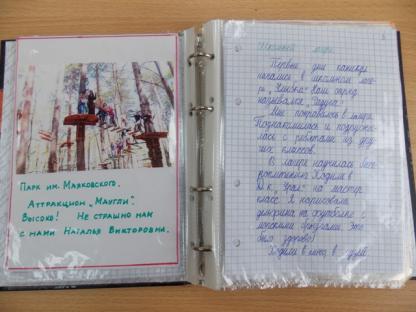 Парк им. Маяковского.
Аттракцион „Маугли".
Высоко! Не страшно нам
с нами Наталья Викторовна.
Школьный лагерь
Первые дни каникул
начались в школьном лаге-
ре Наш отряд
назывался „Радуга".
Мне понравилось в лагере.
Познакомилась и подружи-
лась с ребятами из дру-
гих классов.
В лагере научилась
Ходили в
Д.К. на мастер
класс. Я нарисовала
дельфина на
морскими Это
было здорово!
Ходили в кино, в